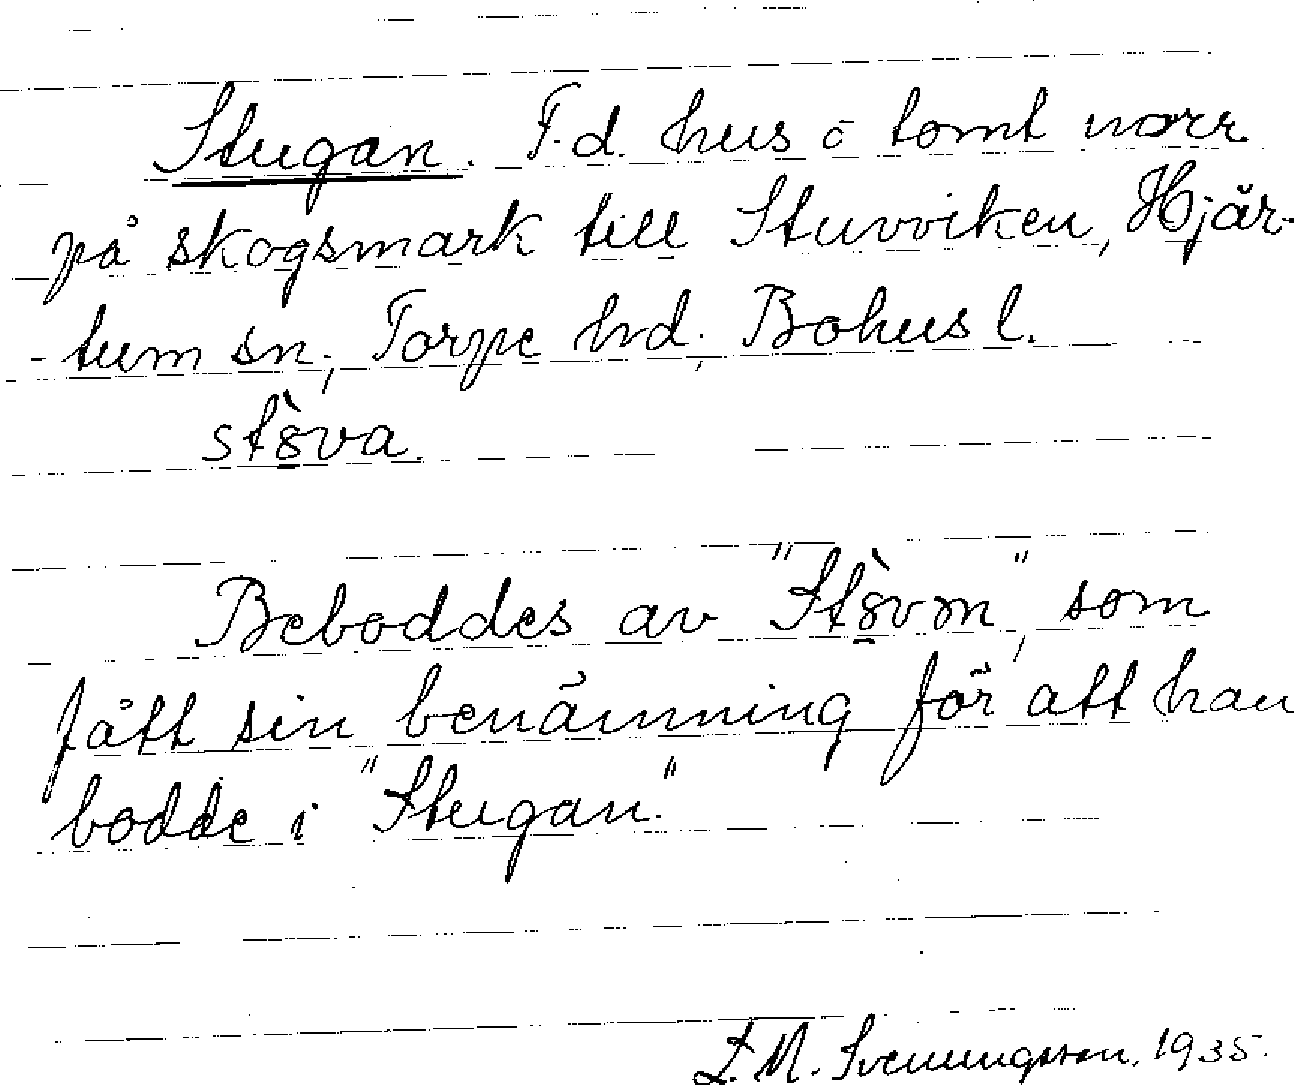 Stugan. F.d. hus o tomt norr
på skogsmark till Stuvviken, Hjär-
-tum sn; Torpe hd; Bohusl.
st8̀va.
Beboddes av "St8̀vm", som
fått sin benämning för att han
bodde i "Stugan".
L.M. Svenungsson. 1935.